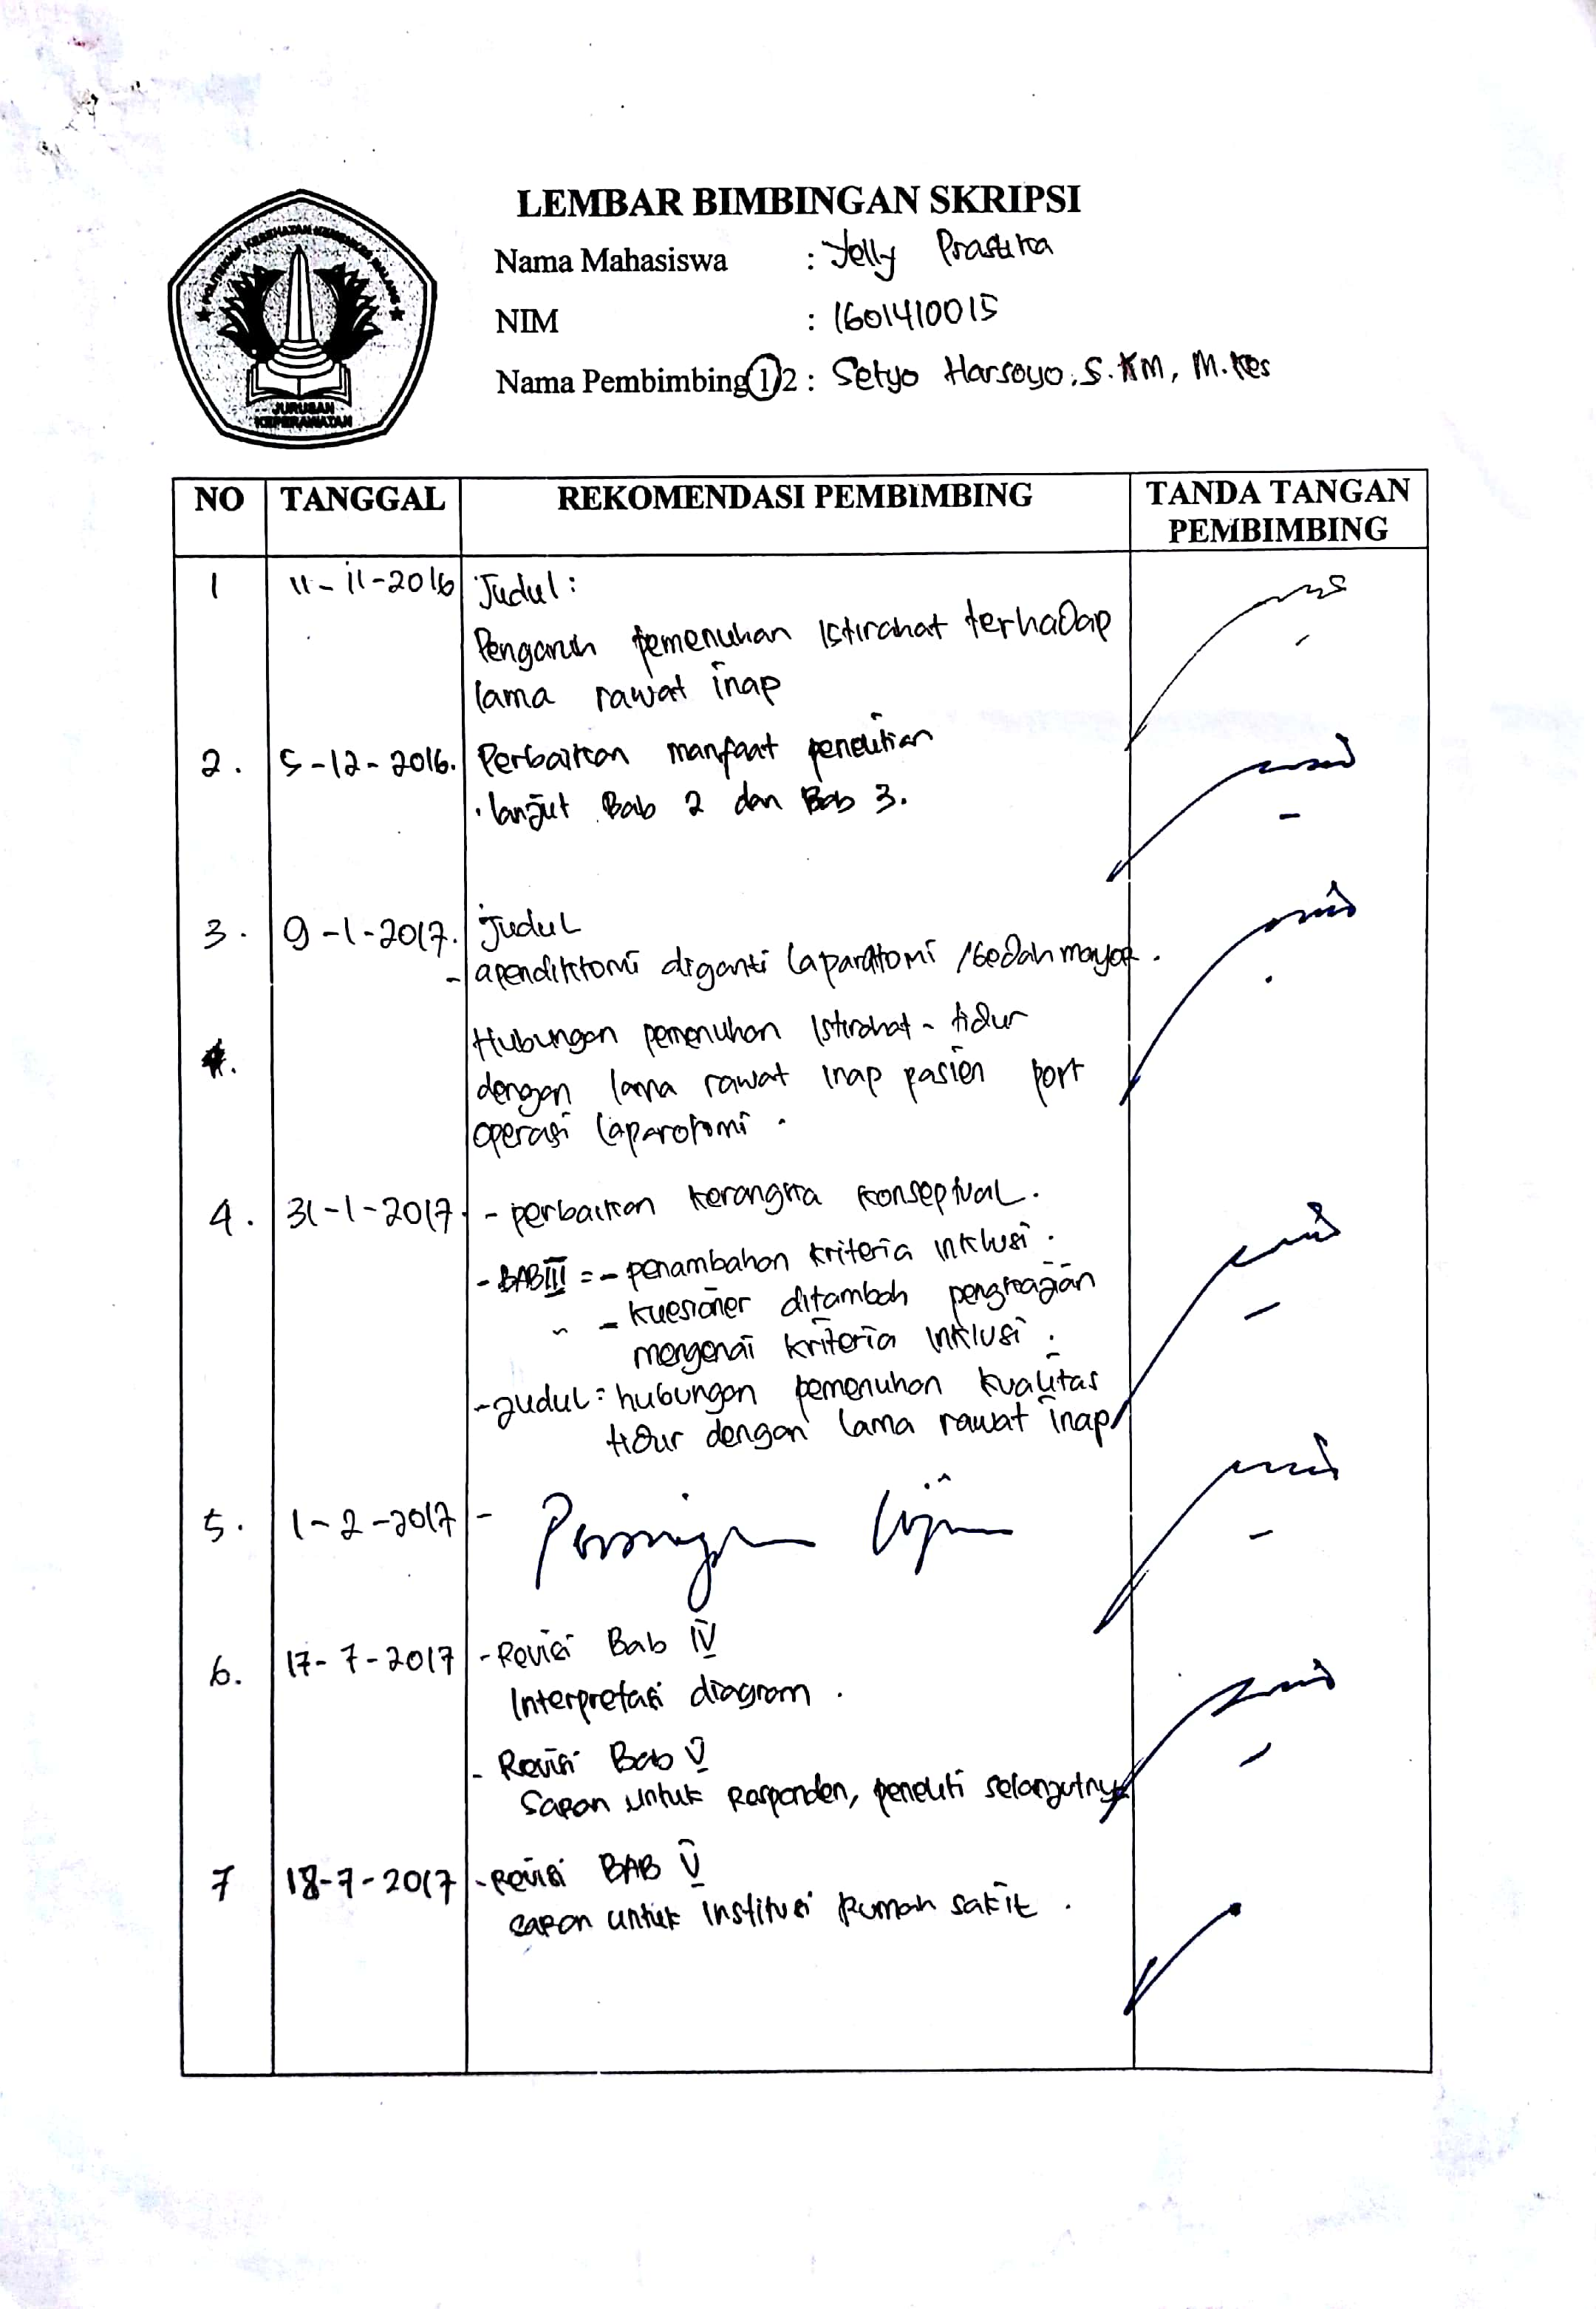 LEMBAR BIMBINGAN SKRIPSI
POLITEKNIK KESEHATAN KEMENKES MALANG
JURUSAN
KEPERAWATAN
Nama Mahasiswa : Jelly Prastika
NIM : 1601410015
Nama Pembimbing 1/2 : Setyo Harsoyo, S.KM, M.Kes
NO TANGGAL REKOMENDASI PEMBIMBING TANDA TANGAN
PEMBIMBING
1 11-11-2016 Judul :
Pengaruh pemenuhan Istirahat terhadap
lama rawat inap
2. 5-12-2016. Perbaikan manfaat penelitian
. lanjut Bab 2 dan Bab 3.
3. 9-1-2017. Judul
- apendiktomi diganti laparatomi / bedah mayor.
Hubungan pemenuhan Istirahat - tidur
4.
dengan lama rawat inap pasien port
operasi laparotomi.
4. 31-1-2017. - perbaikan kerangka konseptual.
- BAB III = - penambahan kriteria inklusi.
- kuesioner ditambah pengkajian
mengenai kriteria inklusi.
- judul = hubungan pemenuhan kualitas
tidur dengan lama rawat inap
5. 1-2-2017 -
6. 17-7-2017 - Revisi Bab IV
Interpretasi diagram.
- Revisi Bab V
Saran untuk Responden, peneliti selanjutnya
7 18-7-2017 - Revisi BAB V
saran untuk institusi Rumah sakit.